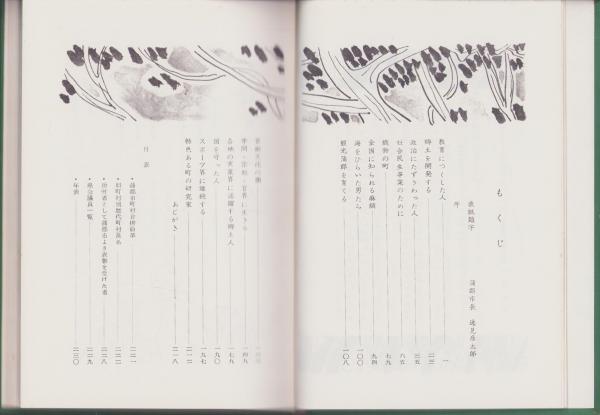 もくじ
表紙題字　蒲郡市長　逸見彦太郎
序
教育につくした人　一
郷土を開発する　二二
政治にたずさわった人　三五
社会民生事業のために　六五
織物の町　七九
全国に知られる麻網　九四
海をひらいた男たち　一〇〇
観光蒲郡を育てる　一〇八
学問・芸術・官界に生きる　一四九
各地の実業界に活躍する郷土人　一七九
国を守った人　一九〇
スポーツ界に雄飛する　一九七
特色ある町の研究家
あとがき　二一八
付表
・蒲郡市町村合併沿革　二二一
・旧町村別歴代町村長名　二二二
・功労者として蒲郡市より表彰を受けた者　二二八
・県会議員一覧　二二九
・年表　二三〇